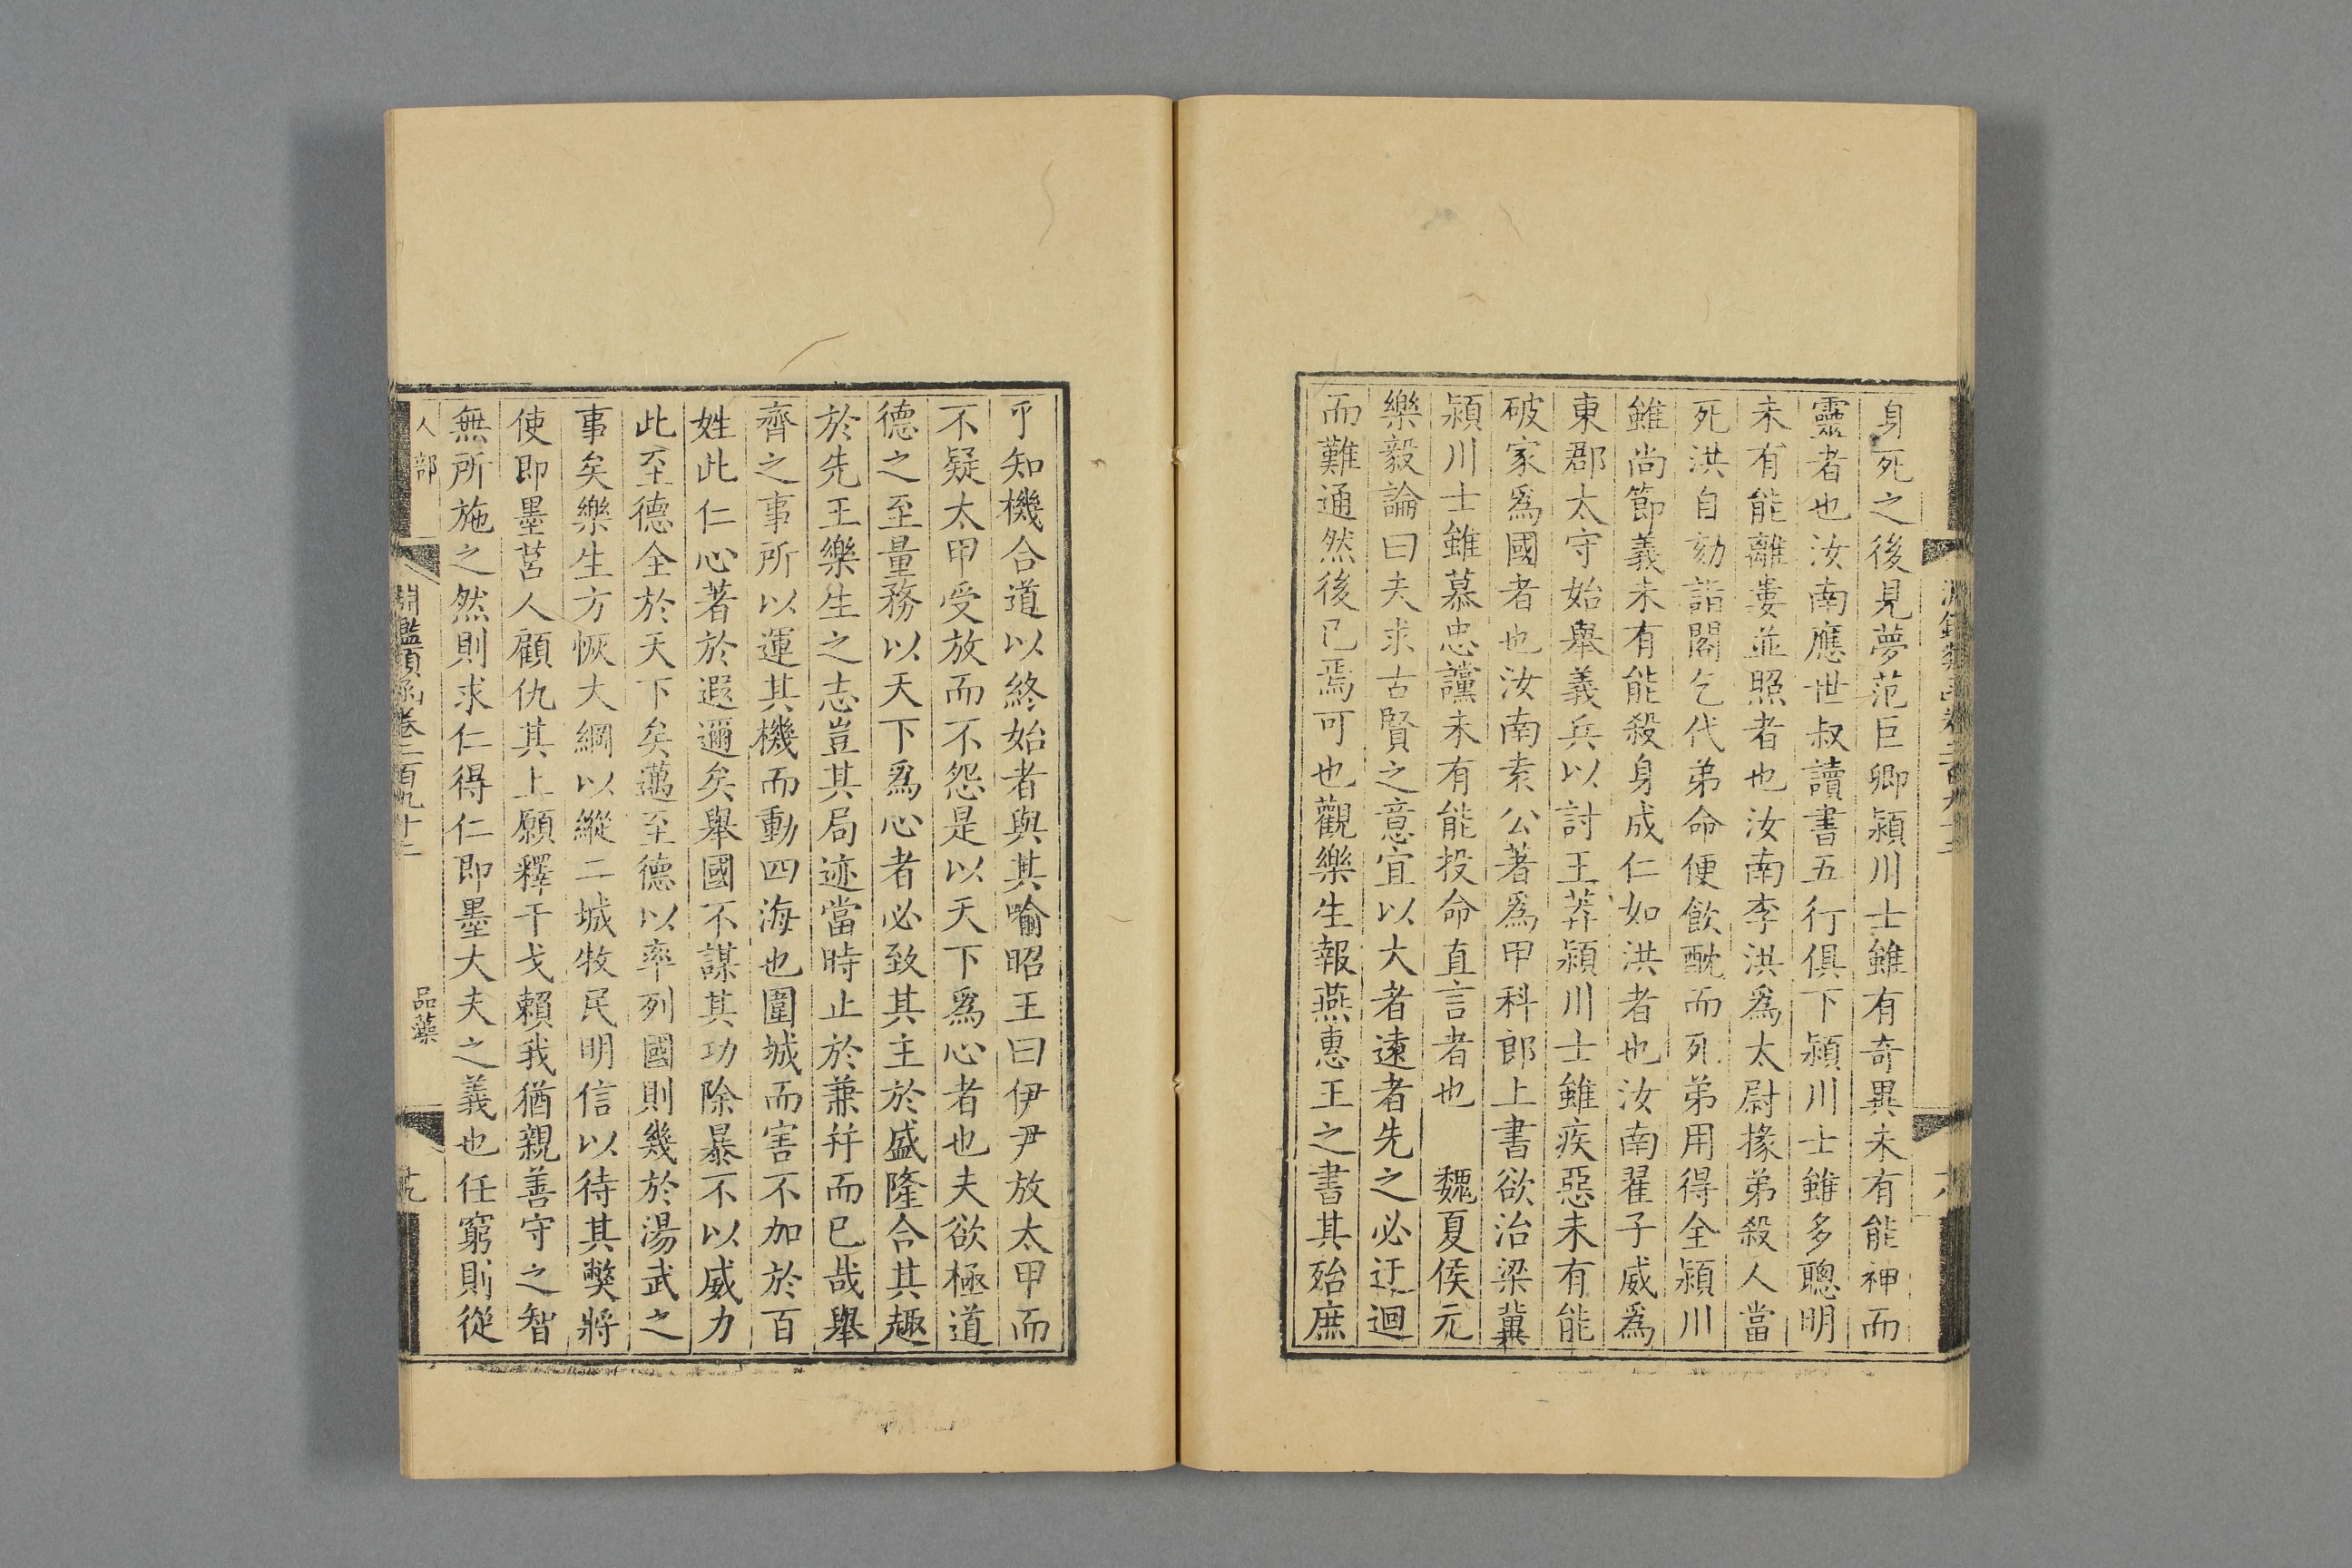 身死之後見夢范巨卿潁川士雖有奇異未有能神而
靈者也汝南應世叔讀書五行俱下潁川士雖多聰明
未有能離婁並照者也汝南李洪爲太尉掾弟殺人當
死洪自劾詣閣乞代弟命便飲酖而死弟用得全潁川
雖尚節義未有能殺身成仁如洪者也汝南翟子威爲
東郡太守始舉義兵以討王莽潁川士雖疾惡未有能
破家爲國者也汝南袁公著爲甲科郎上書欲治梁冀
潁川士雖慕忠讜未有能投命直言者也 魏夏侯元
樂毅論曰夫求古賢之意宜以大者遠者先之必迂迴
而難通然後已焉可也觀樂生報燕惠王之書其殆庶
乎知機合道以終始者與其喻昭王曰伊尹放太甲而
不疑太甲受放而不怨是以天下爲心者也夫欲極道
德之至量務以天下爲心者必致其主於盛隆合其趣
於先王樂生之志豈其局迹當時止於兼并而已哉舉
齊之事所以運其機而動四海也圍城而害不加於百
姓此仁心著於遐邇矣舉國不謀其功除暴不以威力
此至德全於天下矣邁至德以率列國則幾於湯武之
事矣樂生方恢大綱以縱二城牧民明信以待其獘將
使即墨莒人顧仇其上願釋干戈賴我猶親善守之智
無所施之然則求仁得仁即墨大夫之義也任窮則從
人部 淵鑑類函卷二百九十二 品藻